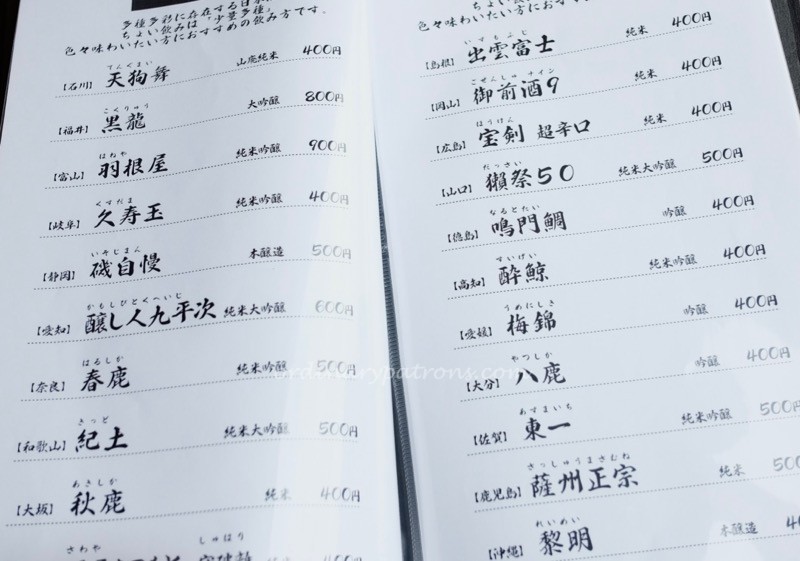 多種多彩に存在する日本
ちょい飲みは“少量多種”
色々味わいたい方におすすめの飲み方です。
【石川】 天狗舞 てんぐまい 山廃純米 400円
【福井】 黒龍 こくりゅう 大吟醸 800円
【富山】 羽根屋 はねや 純米吟醸 900円
【岐阜】 久寿玉 くすだま 純米吟醸 400円
【静岡】 磯自慢 いそじまん 本醸造 500円
【愛知】 醸し人九平次 かもしびとくへいじ 純米大吟醸 600円
【奈良】 春鹿 はるしか 純米吟醸 500円
【和歌山】 紀土 きっど 純米大吟醸 500円
【大坂】 秋鹿 あきしか 純米 400円
さわや しゅはり
色々味わいたい方におすすめの飲み方です。
【島根】 出雲富士 いずもふじ 純米 400円
【岡山】 御前酒9 ごぜんしゅ ナイン 純米 400円
【広島】 宝剣 超辛口 ほうけん 純米 400円
【山口】 獺祭50 だっさい 純米大吟醸 500円
【徳島】 鳴門鯛 なるとたい 吟醸 400円
【高知】 酔鯨 すいげい 純米吟醸 400円
【愛媛】 梅錦 うめにしき 吟醸 400円
【大分】 八鹿 やつしか 吟醸 400円
【佐賀】 東一 あずまいち 純米吟醸 500円
【鹿児島】 薩州正宗 さっしゅうまさむね 純米 500
【沖縄】 黎明 れいめい 本醸造 4